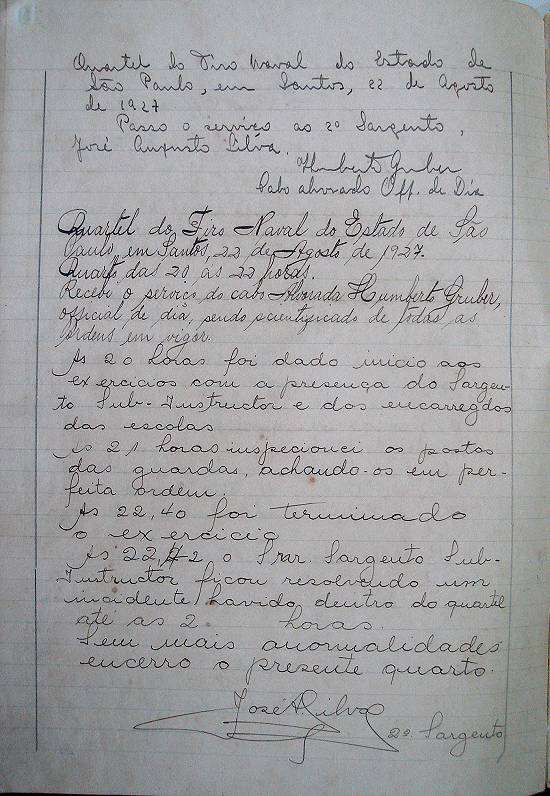 Quartel do Tiro Naval do Estado de
São Paulo, em Santos, 22 de Agosto
de 1927
Passo o serviço ao 2º Sargento,
José Augusto Silva.
Humberto Gruber
Cabo alvorado Off. de Dia
Quartel do Tiro Naval do Estado de São
Paulo, em Santos, 22 de Agosto de 1927.
Quarto das 20 ás 22 horas.
Recebi o serviço do cabo Alvorada Humberto Gruber,
official de dia, sendo scientificado de todas as
ordens em vigor.
As 20 horas foi dado inicio aos
exercicios com a presença do Sargen-
to Sub-Instructor e dos encarregdos
das escolas
As 21 horas inspecionei os postos
das guardas, achando-os em per-
feita ordem.
As 22,40 foi terminado
o exercicio
As 22,42 o Snr. Sargento Sub-
Instructor ficou resolvendo um
incidente havido dentro do quartel
até as 2 horas.
Sem mais anomalidades
encerro o presente quarto.
José A. Silva
2º Sargento